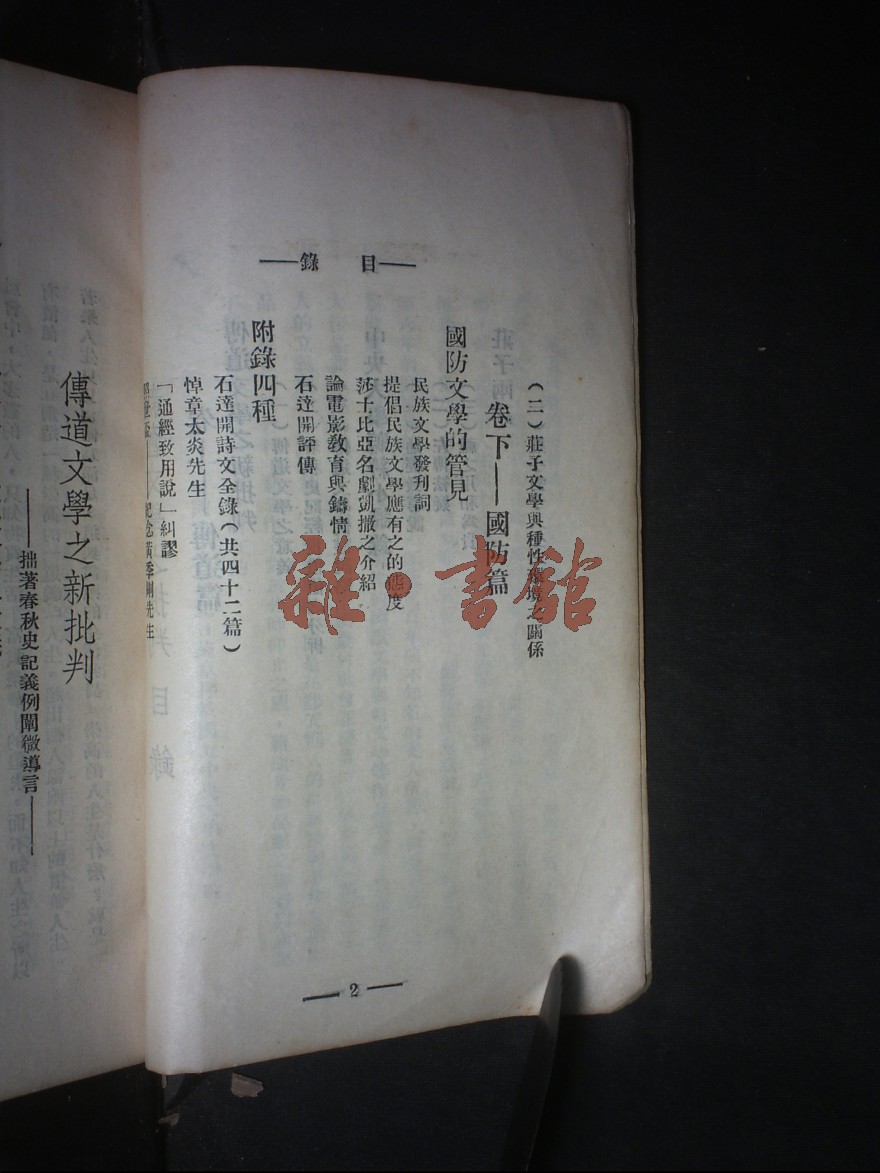 目錄
(二)莊子文學與種性環境之關係
卷下——國防篇
國防文學的管見
民族文學發刊詞
提倡民族文學應有之的態度
莎士比亞名劇凱撒之介紹
論電影教育與鑄情
石達開評傳
附錄四種
石達開詩文全錄(共四十二篇)
悼章太炎先生
「通經致用說」糾謬
紀念黃季剛先生
2
傳道文學之新批判
——拙著春秋史記義例闡微導言——
雜·書館